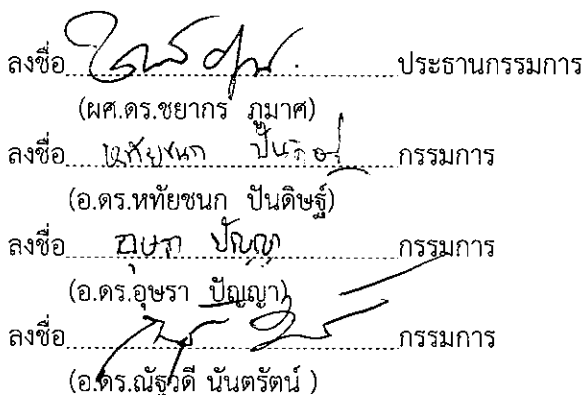 ลงชื่อ..........ประธานกรรมการ
(ผศ.ดร.ชยากร ภูมาศ)
ลงชื่อ หทัยชนก ปันดิษฐ์ กรรมการ
(อ.ดร.หทัยชนก ปันดิษฐ์)
ลงชื่อ อุษรา ปัญญา กรรมการ
(อ.ดร.อุษรา ปัญญา)
ลงชื่อ..........กรรมการ
(อ.ดร.ณัฐวดี นันตรัตน์ )